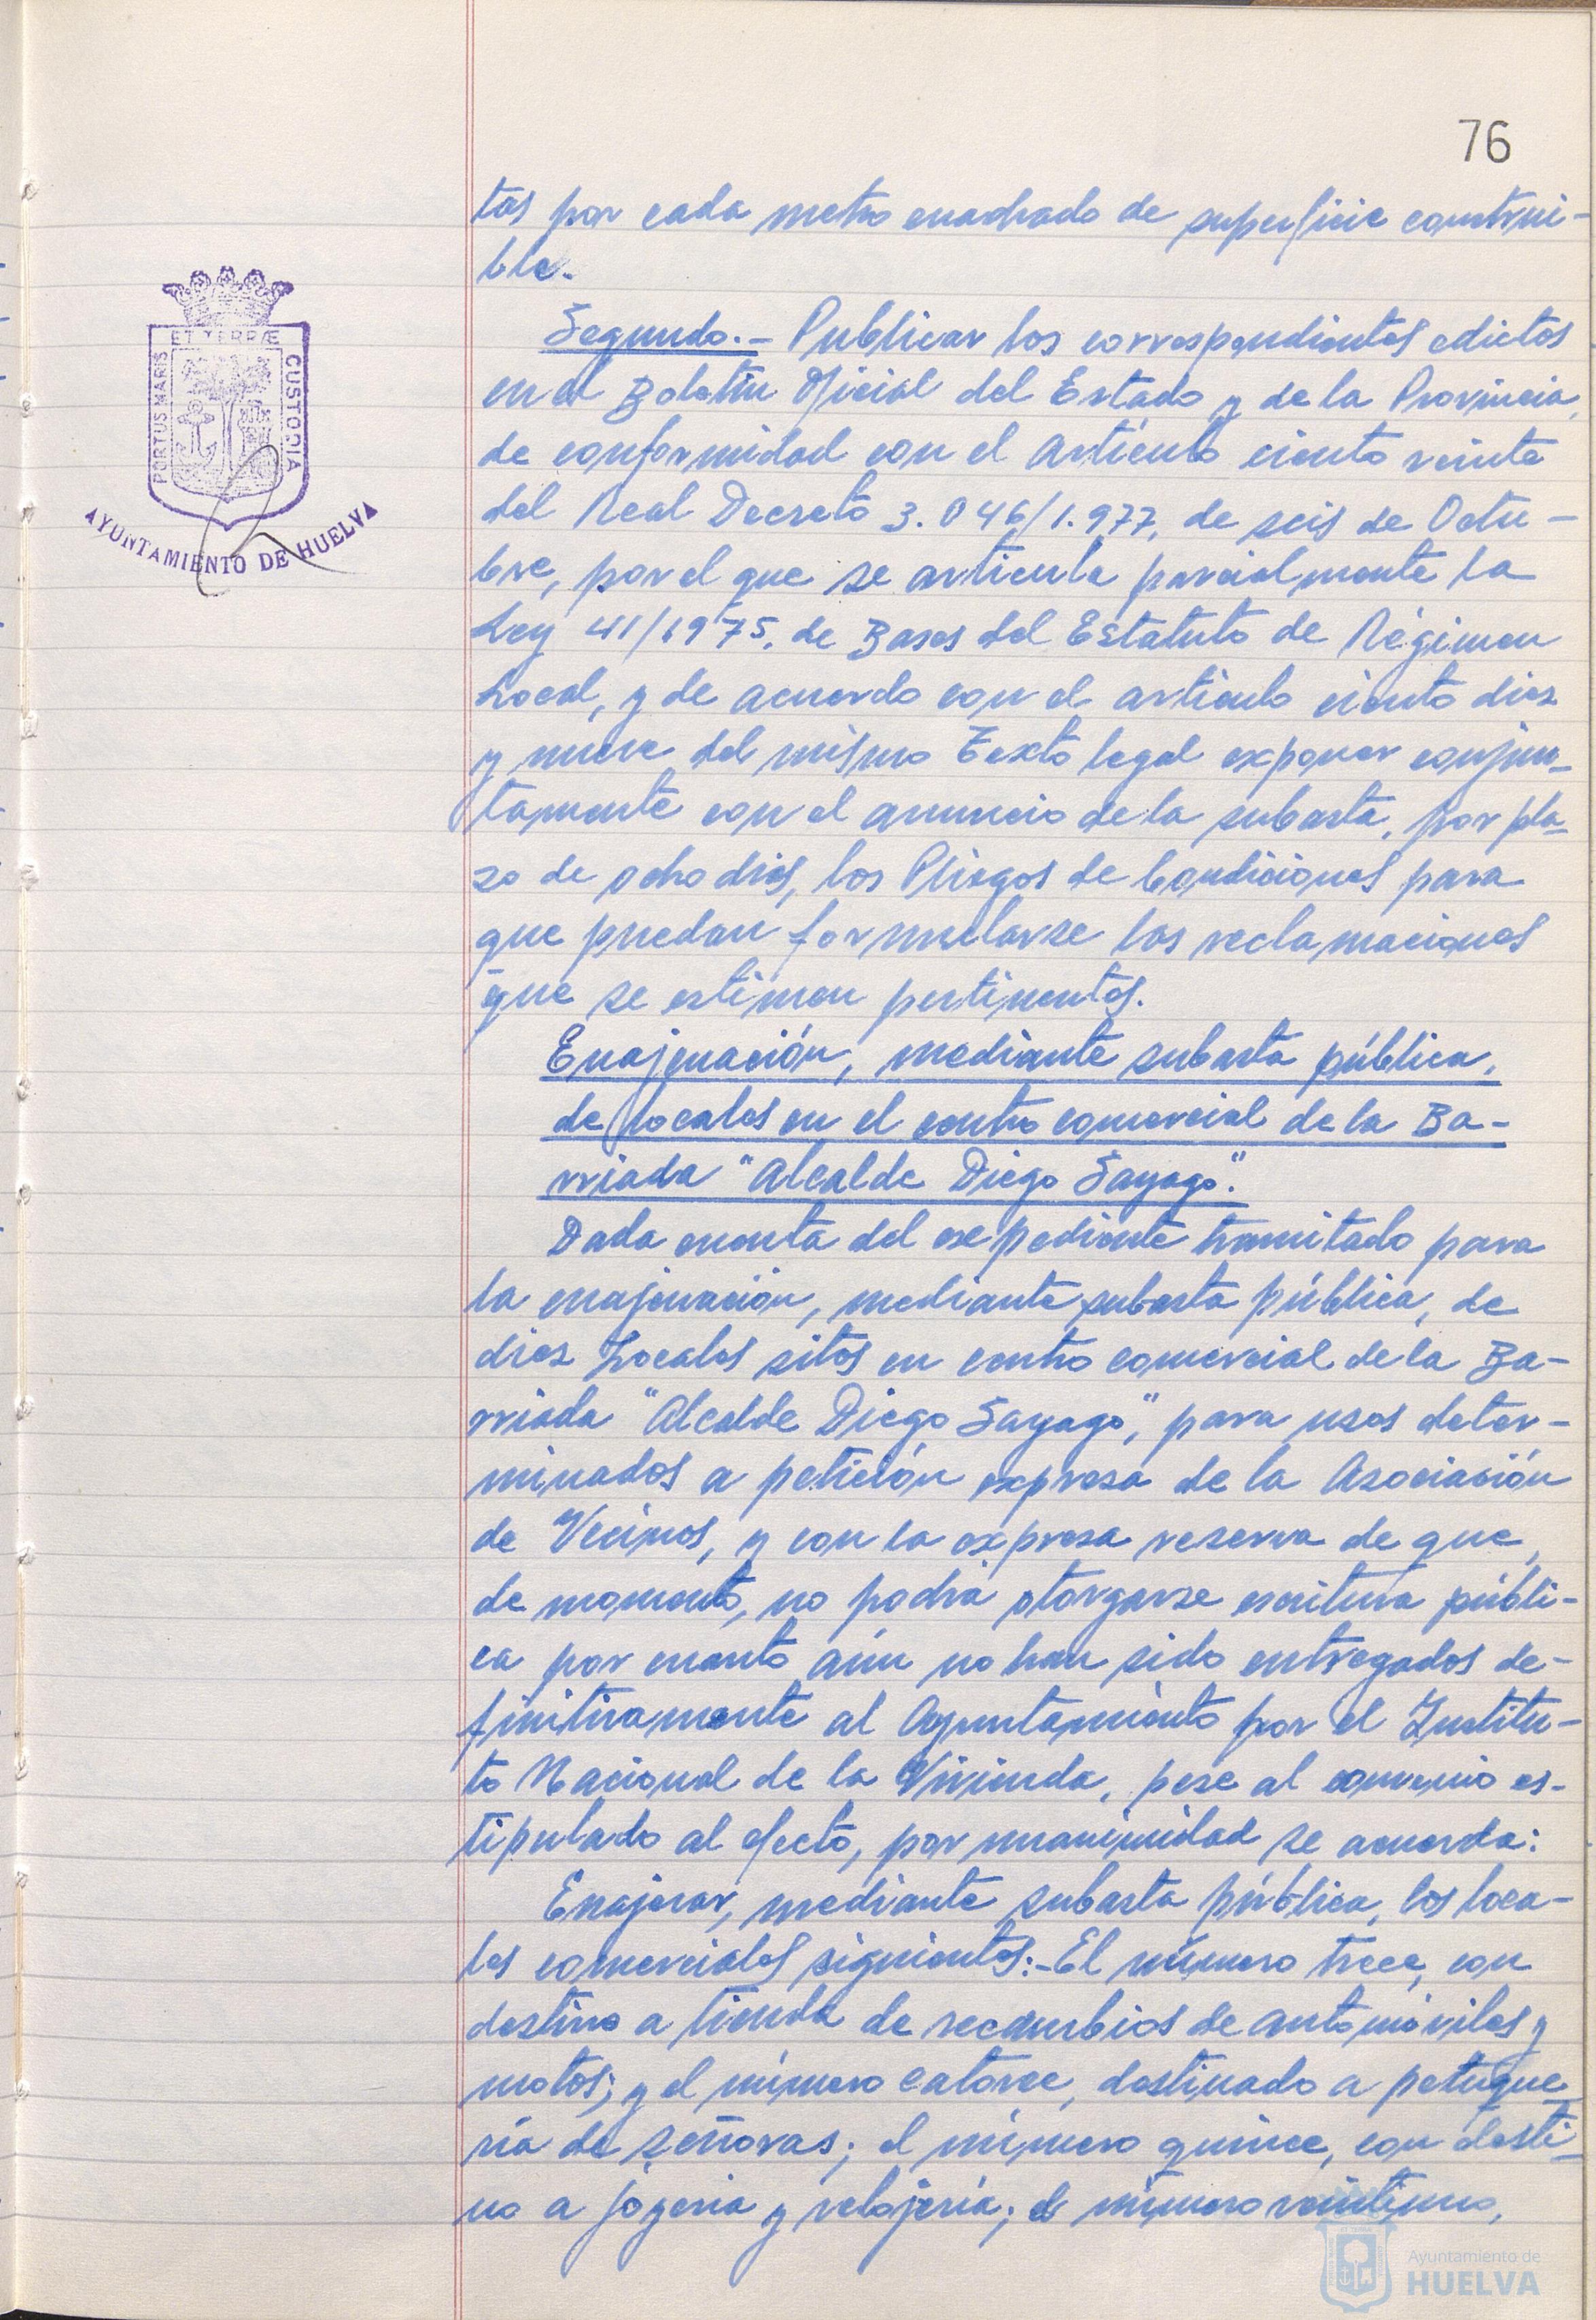 76
tas por cada metro cuadrado de superficie construi-
ble.
Segundo.- Publicar los correspondientes edictos
en el Boletín Oficial del Estado y de la Provincia,
de conformidad con el artículo ciento veinte
del Real Decreto 3.046/1.977, de seis de Octu-
bre, por el que se articula parcialmente la
Ley 41/1975, de Bases del Estatuto de Régimen
Local, y de acuerdo con el artículo ciento diez
y nueve del mismo Texto legal exponer conjun-
tamente con el anuncio de la subasta, por pla-
zo de ocho dias, los Pliegos de Condiciones para
que puedan formularse las reclamaciones
que se estimen pertinentes.
Enajenación, mediante subasta pública,
de locales en el centro comercial de la Ba-
rriada "Alcalde Diego Sayago".
Dada cuenta del expediente tramitado para
la enajenación, mediante subasta pública, de
diez Locales sitos en centro comercial de la Ba-
rriada "Alcalde Diego Sayago", para usos deter-
minados a petición expresa de la Asociación
de Vecinos, y con la expresa reserva de que,
de momento, no podrá otorgarse escritura públi-
ca por cuanto aún no han sido entregados de-
finitivamente al Ayuntamiento por el Institu-
to Nacional de la Vivienda, pese al convenio es-
tipulado al efecto, por unanimidad se acuerda:
Enajenar, mediante subasta pública, los loca-
les comerciales siguientes:- El número trece, con
destino a tienda de recambios de automóviles y
motos; y el número catorce, destinado a peluque-
ría de señoras; el número quince, con desti-
no a joyeria y relojería; el número veintiuno,
ET TERRÆ
PORTUS MARIS
CUSTODIA
AYUNTAMIENTO DE HUELVA
Ayuntamiento de
HUELVA